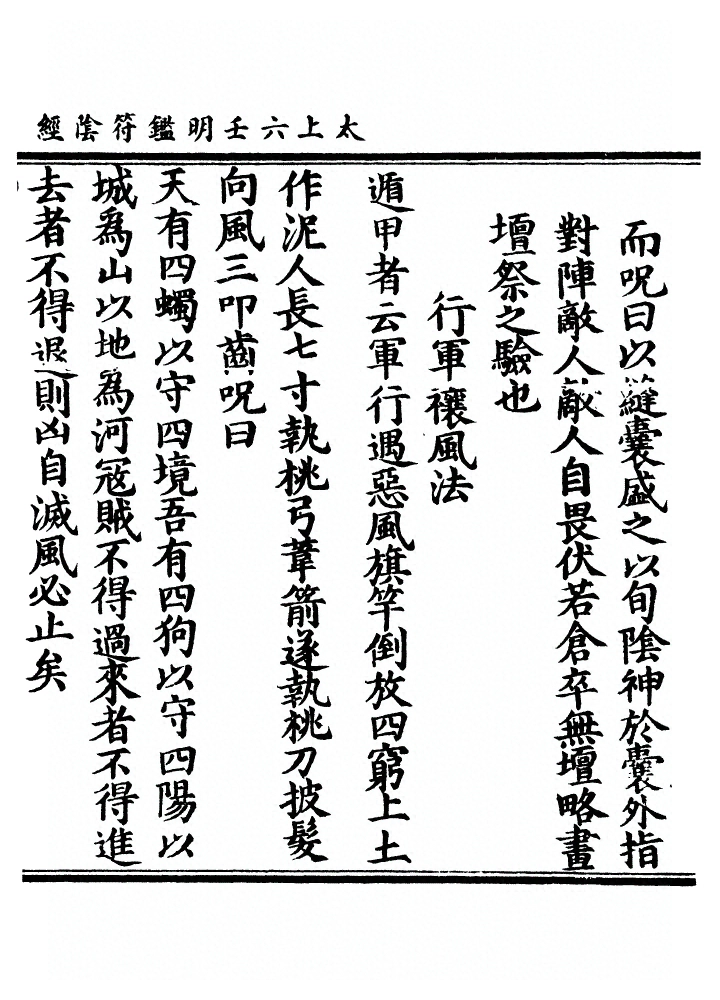 太上六壬明鑑符陰經
而呪曰以縫囊盛之以旬陰神於囊外指
對陣敵人敵人自畏伏若倉卒無壇略畫
壇祭之驗也
行軍禳風法
遁甲者云軍行遇惡風旗竿倒放四窮上土
作泥人長七寸執桃弓葦箭遂執桃刀披髮
向風三叩齒呪曰
天有四蠋以守四境吾有四狗以守四陽以
城為山以地為河冦賊不得過來者不得進
去者不得退則凶自滅風必止矣